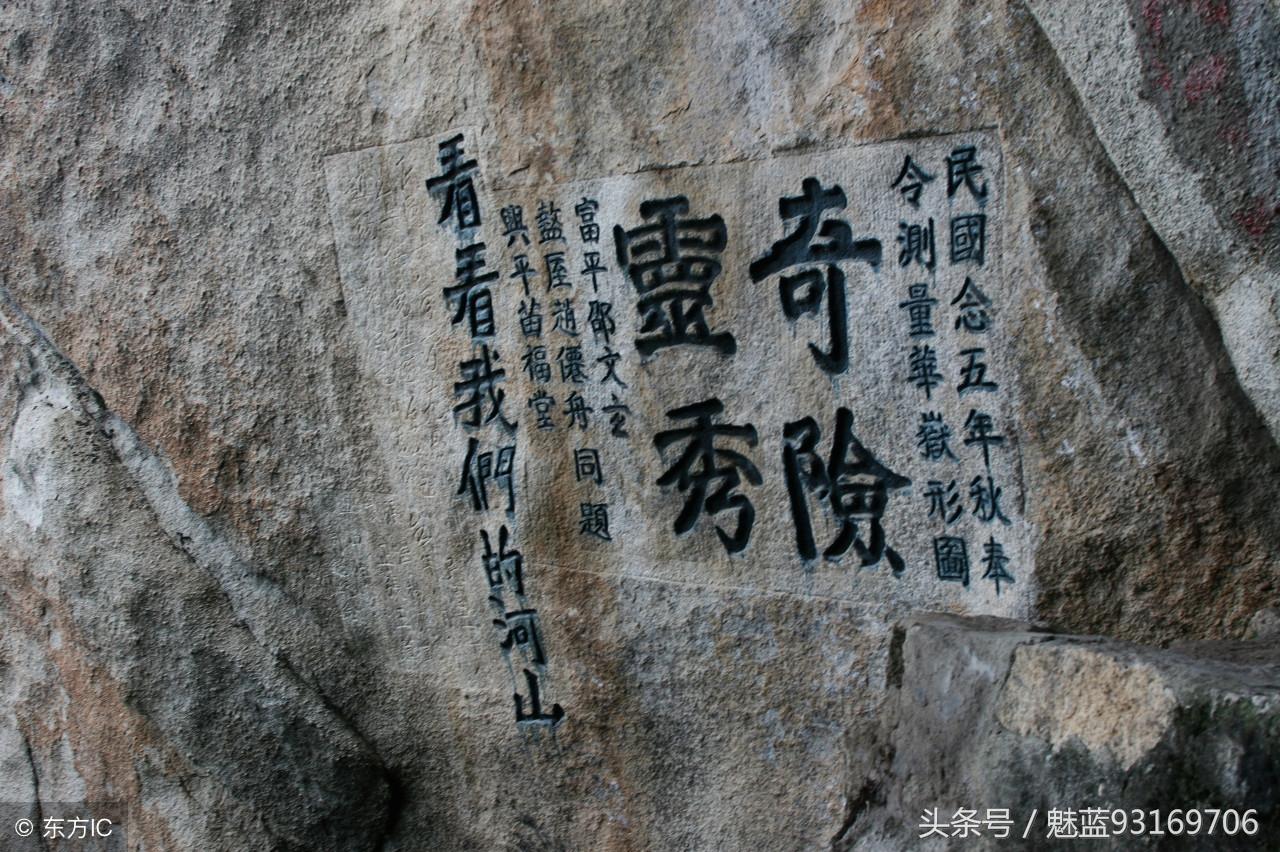 民國念五年秋奉
令測量華嶽形圖
奇險
靈秀
富平邵文立
盩厔趙僊舟同題
興平苗福堂
看看我們的河山
© 东方IC
头条号 / 魅蓝93169706